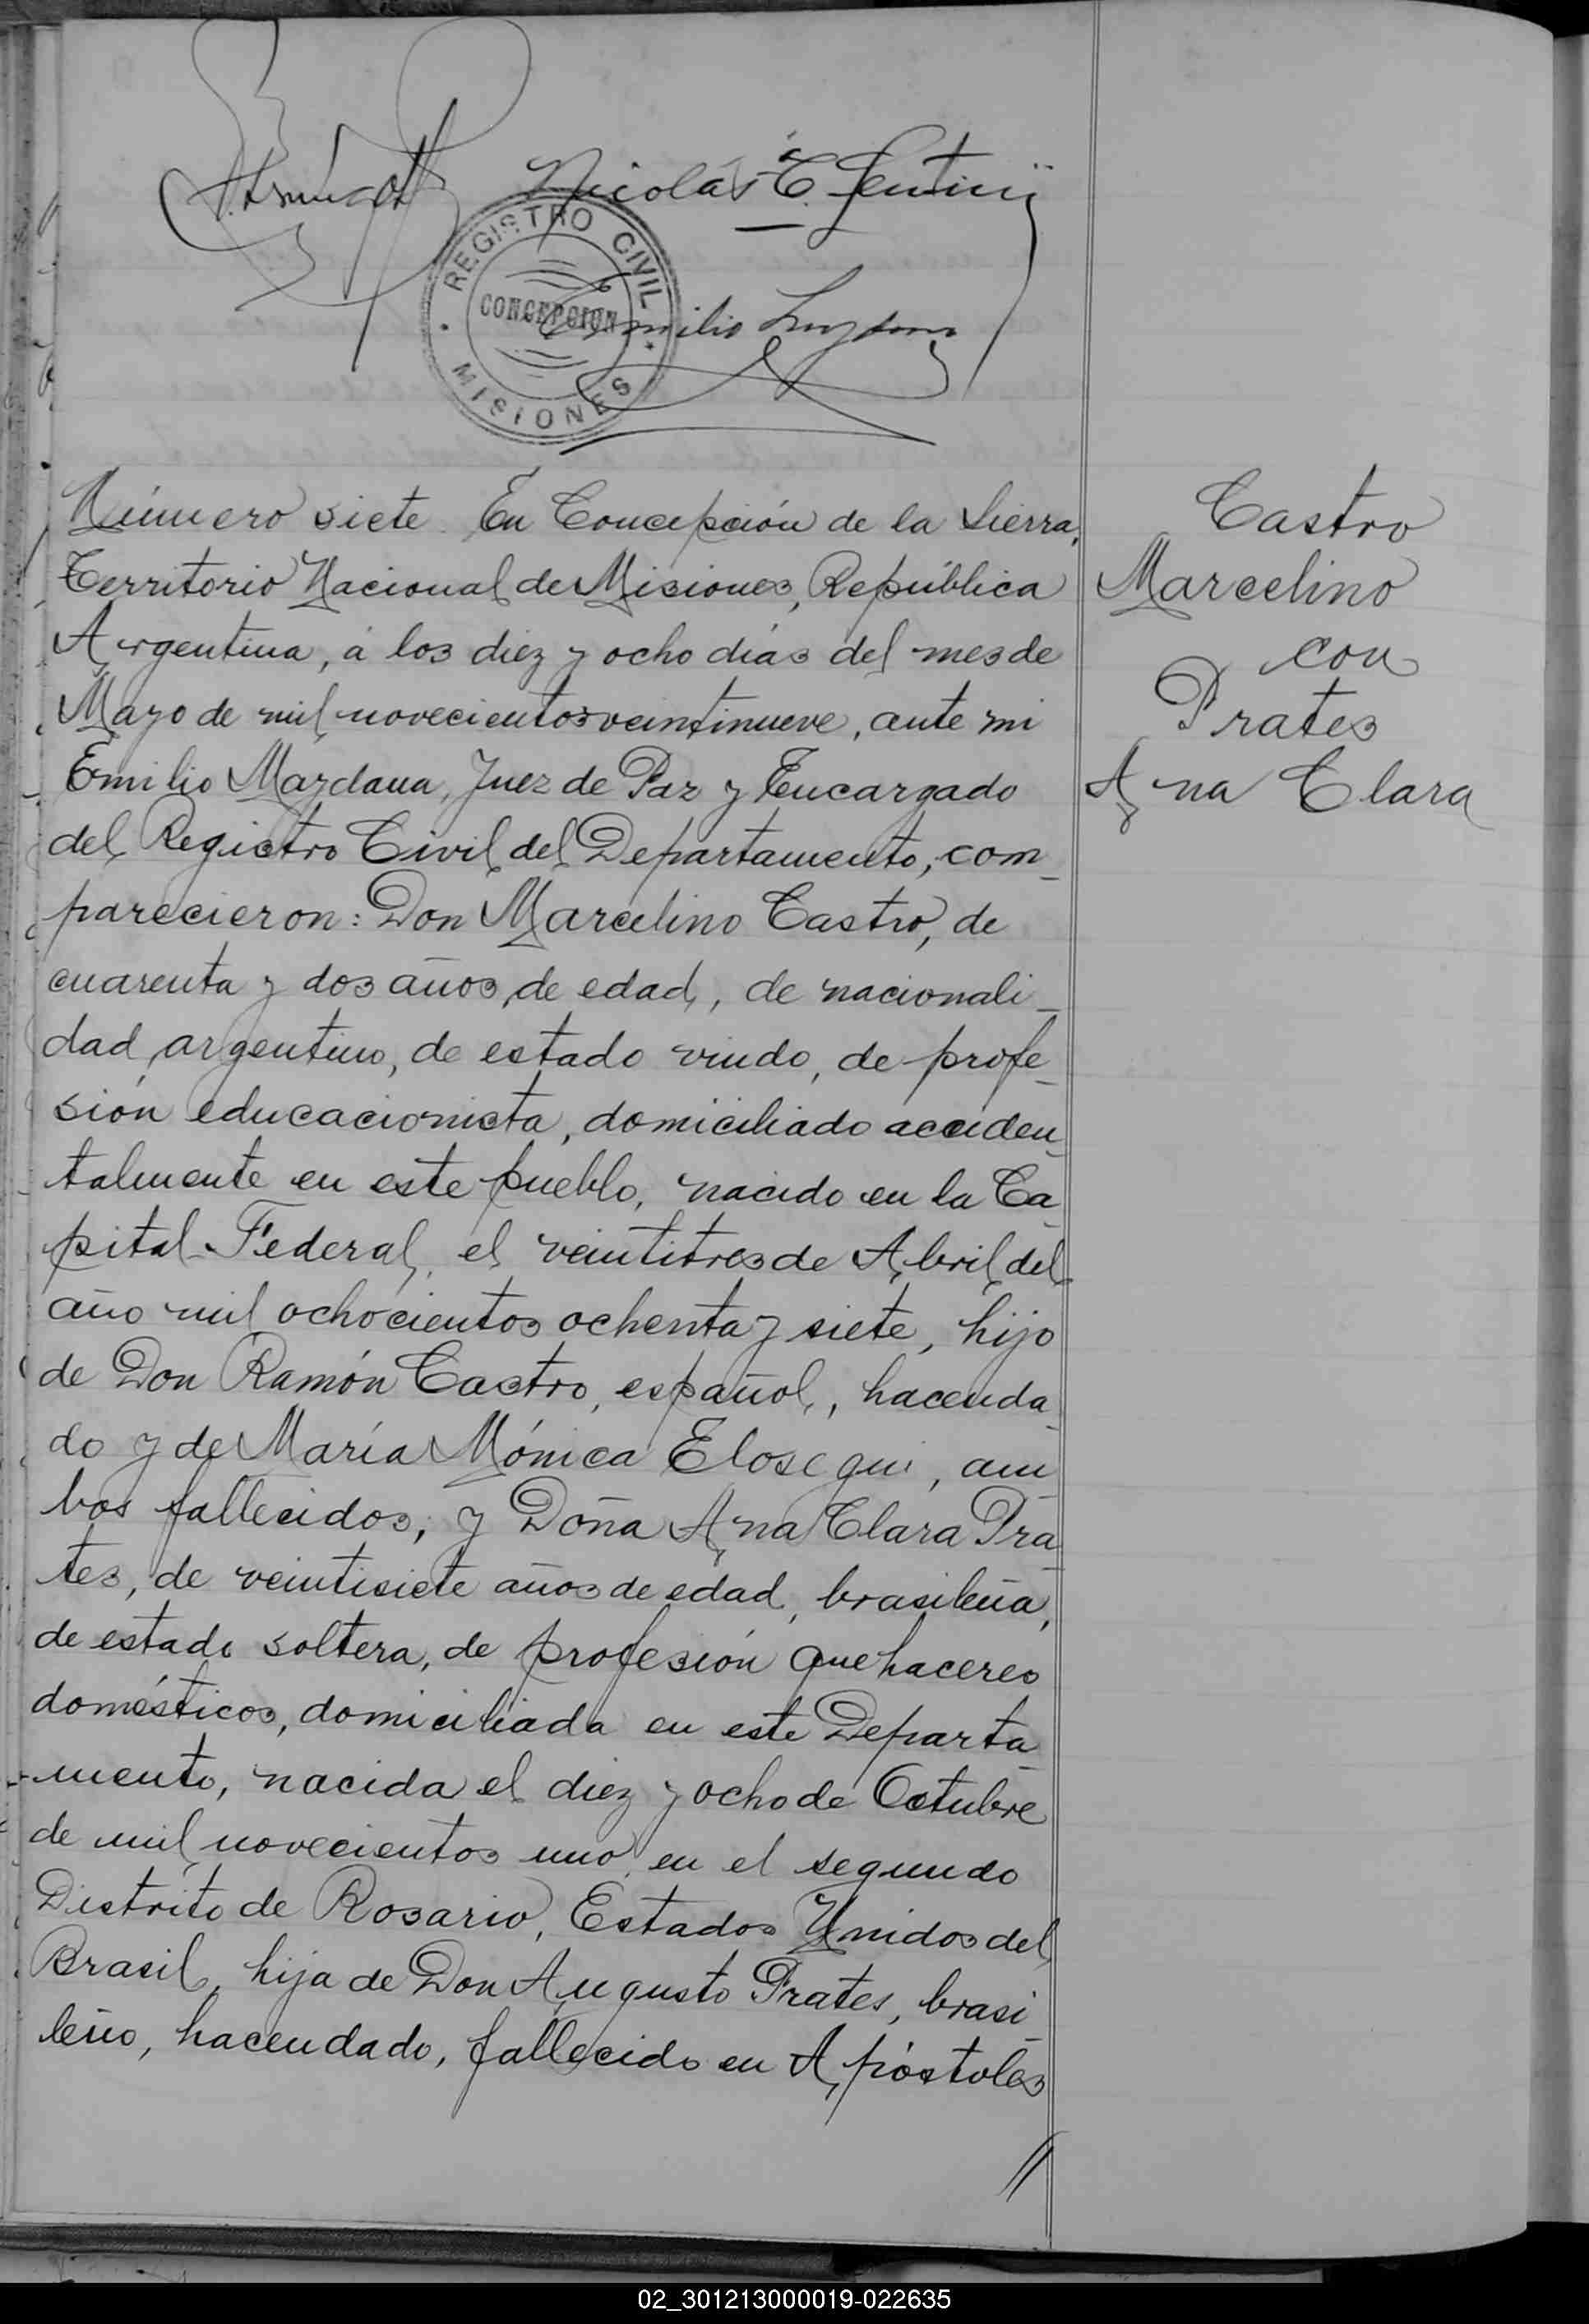 Nicolás
REGISTRO CIVIL
CONCEPCION
MISIONES
Emilio
Número siete. En Concepción de la Sierra,
Territorio Nacional de Misiones, República
Argentina, á los diez y ocho días del mes de
Mayo de mil novecientos veintinueve, ante mi
Emilio Maydana, Juez de Paz y Encargado
del Registro Civil del Departamento, com_
parecieron: Don Marcelino Castro, de
cuarenta y dos años de edad, de nacionali_
dad argentino, de estado viudo, de profe_
sión educacionista, domiciliado acciden_
talmente en este pueblo, nacido en la Ca_
pital Federal, el veintitres de Abril del
año mil ochocientos ochenta y siete, hijo
de Don Ramón Castro, español, hacenda_
do y de María Mónica Elosegui, am_
bos fallecidos; y Doña Ana Clara Pra_
tes, de veintisiete años de edad, brasileña,
de estado soltera, de profesión quehaceres
domésticos, domiciliada en este Departa_
mento, nacida el diez y ocho de Octubre
de mil novecientos uno en el segundo
Distrito de Rosario, Estados Unidos del
Brasil, hija de Don Augusto Prates, brasi_
leño, hacendado, fallecido en Apóstoles
//
Castro
Marcelino
con
Prates
Ana Clara
02_301213000019-022635